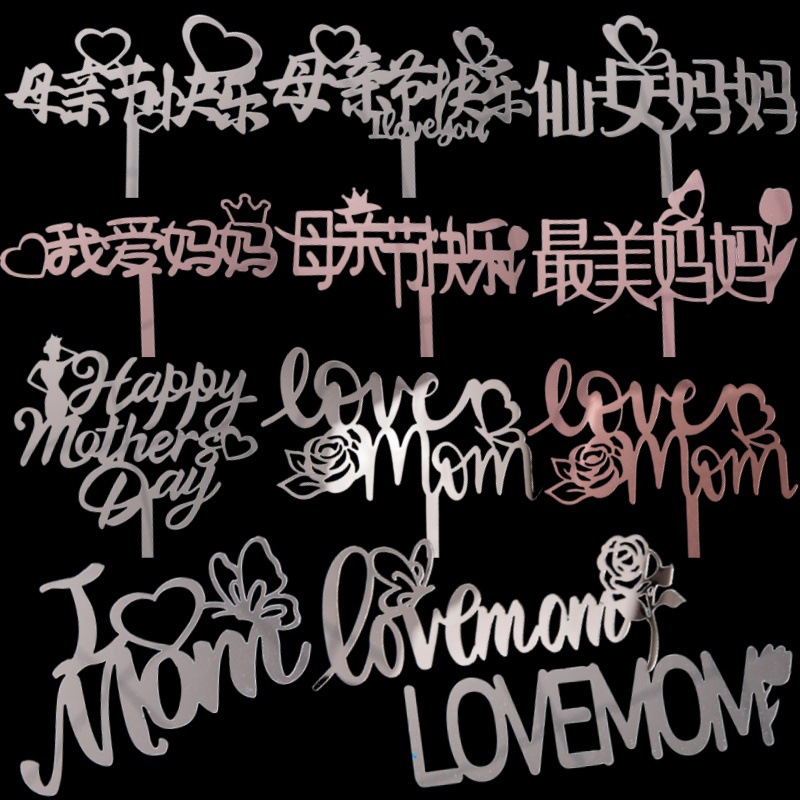 母亲节快乐
母亲节快乐
I love you
仙女妈妈
我爱妈妈
母亲节快乐
最美妈妈
Happy
Mothers
Day
love
Mom
love
Mom
I
Mom
lovemom
LOVEMOM